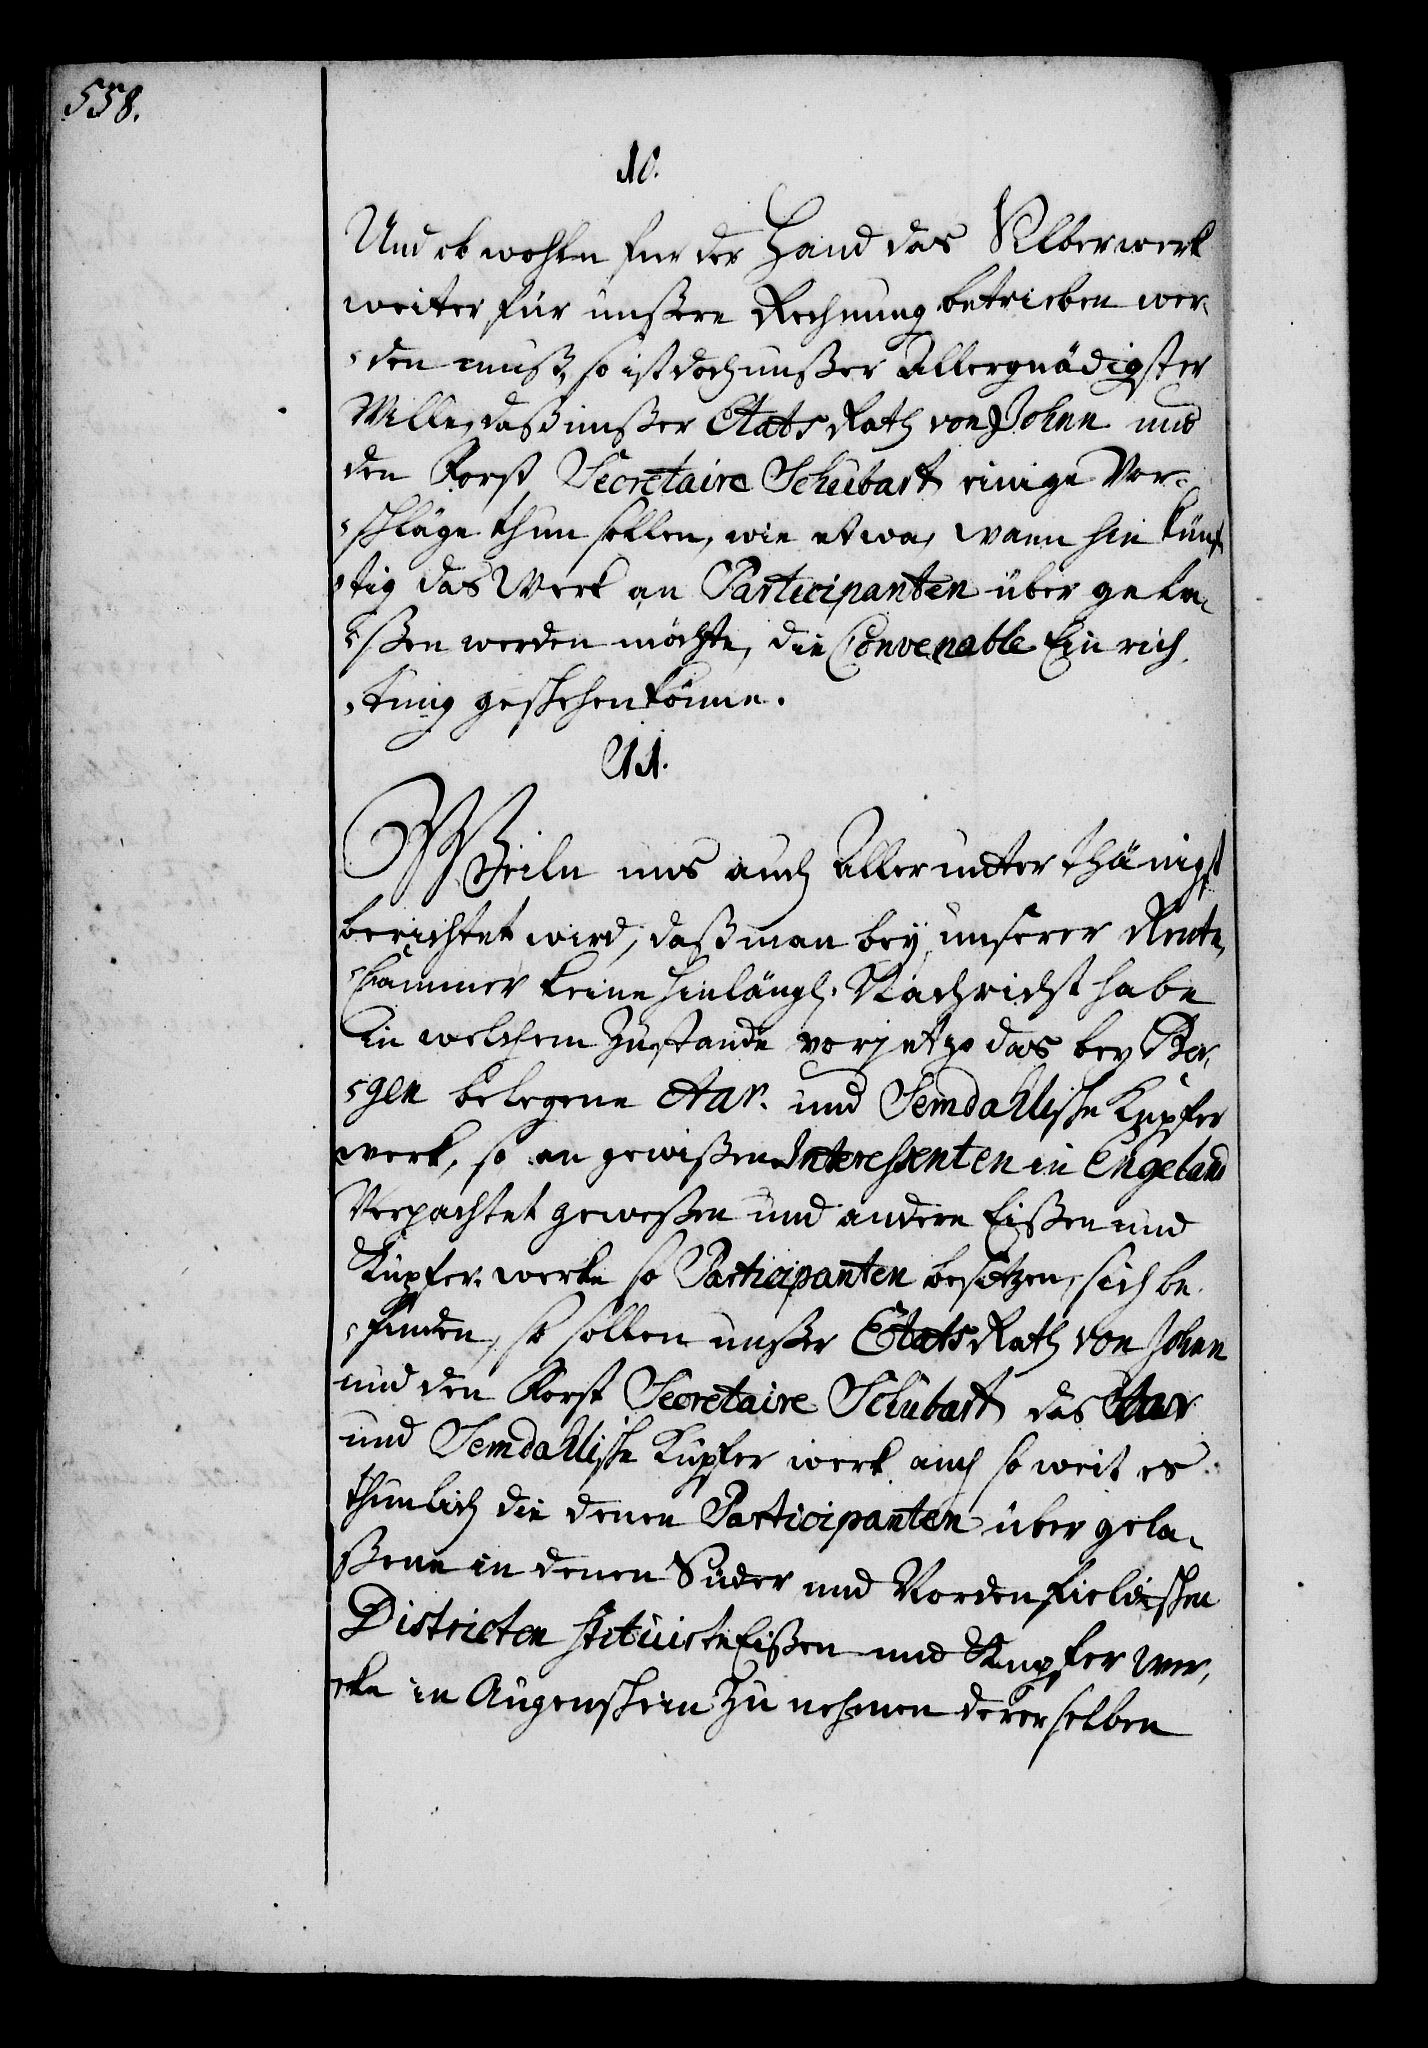 558.
10.
Und ob wohlen für der Hand das Silberwerk
weiter für unsere Rechnung betrieben wer-
den muß, so ist doch unßer Allergnädigster
Wille, daß unßer Etats Rath von Johnn und
den Forst Secretaire Schubart einige Vor-
schläge thun sollen, wie etwa, wann hin künf
tig das Werk an Participanten über gela-
ßen werden möchte, die Convenable Ein rich
tung geschehen könne.
11.
Weiln uns auch Allerunterthänigst
berichtet wird, daß man bey unserer Rente
Cammer keine hinlängl. Nachricht habe
in welchem Zustande vorjetzo das bey Ber-
gen belegene Aar. und Semdahlische Kupfer
werk, so an gewißen Interessenten in Engeland
Verpachtet geweßen und andere Eißen und
Kupfer werke so Participanten besitzen, sich be
finden, so sollen unßer Etats Rath von Johnn
und den Forst Secretaire Schubart das Aar
und Semdahlische Kupfer werk auch so weit es
thunlich die denen Participanten über gela-
ßene in denen Süder und Norden fieldischen
Districten situirte Eißen und Kupfer wer-
cke in Augenschein zu nehmen dererselben